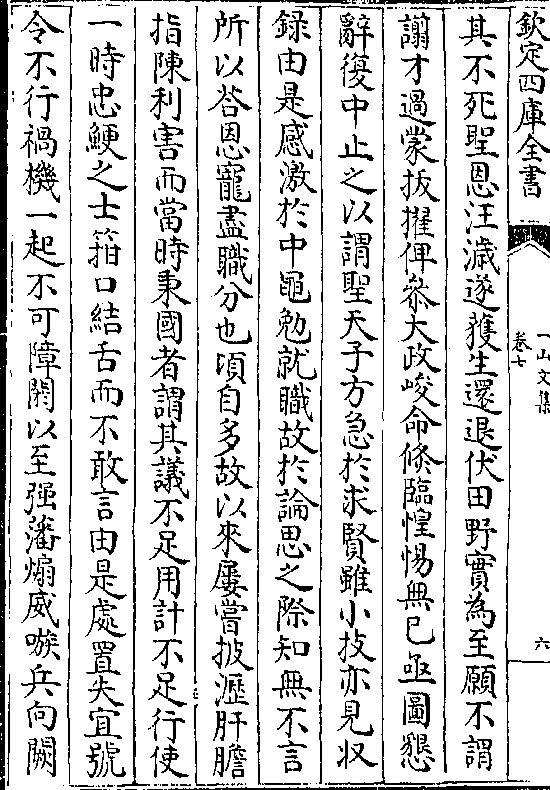 欽定四庫全書
一山文集
卷七
六
其不死聖恩汪濊遂獲生還退伏田野實為至願不謂
譾才過蒙拔擢俾叅大政峻命倐臨惶惕無已亟圖懇
辭復中止之以謂聖天子方急於求賢雖小技亦見収
録由是感激於中黽勉就職故於論思之際知無不言
所以荅恩寵盡職分也頃自多故以來屢嘗披瀝肝膽
指陳利害而當時秉國者謂其議不足用計不足行使
一時忠鯁之士箝口結舌而不敢言由是處置失宜號
令不行禍機一起不可障閼以至强藩煽威嗾兵向闕